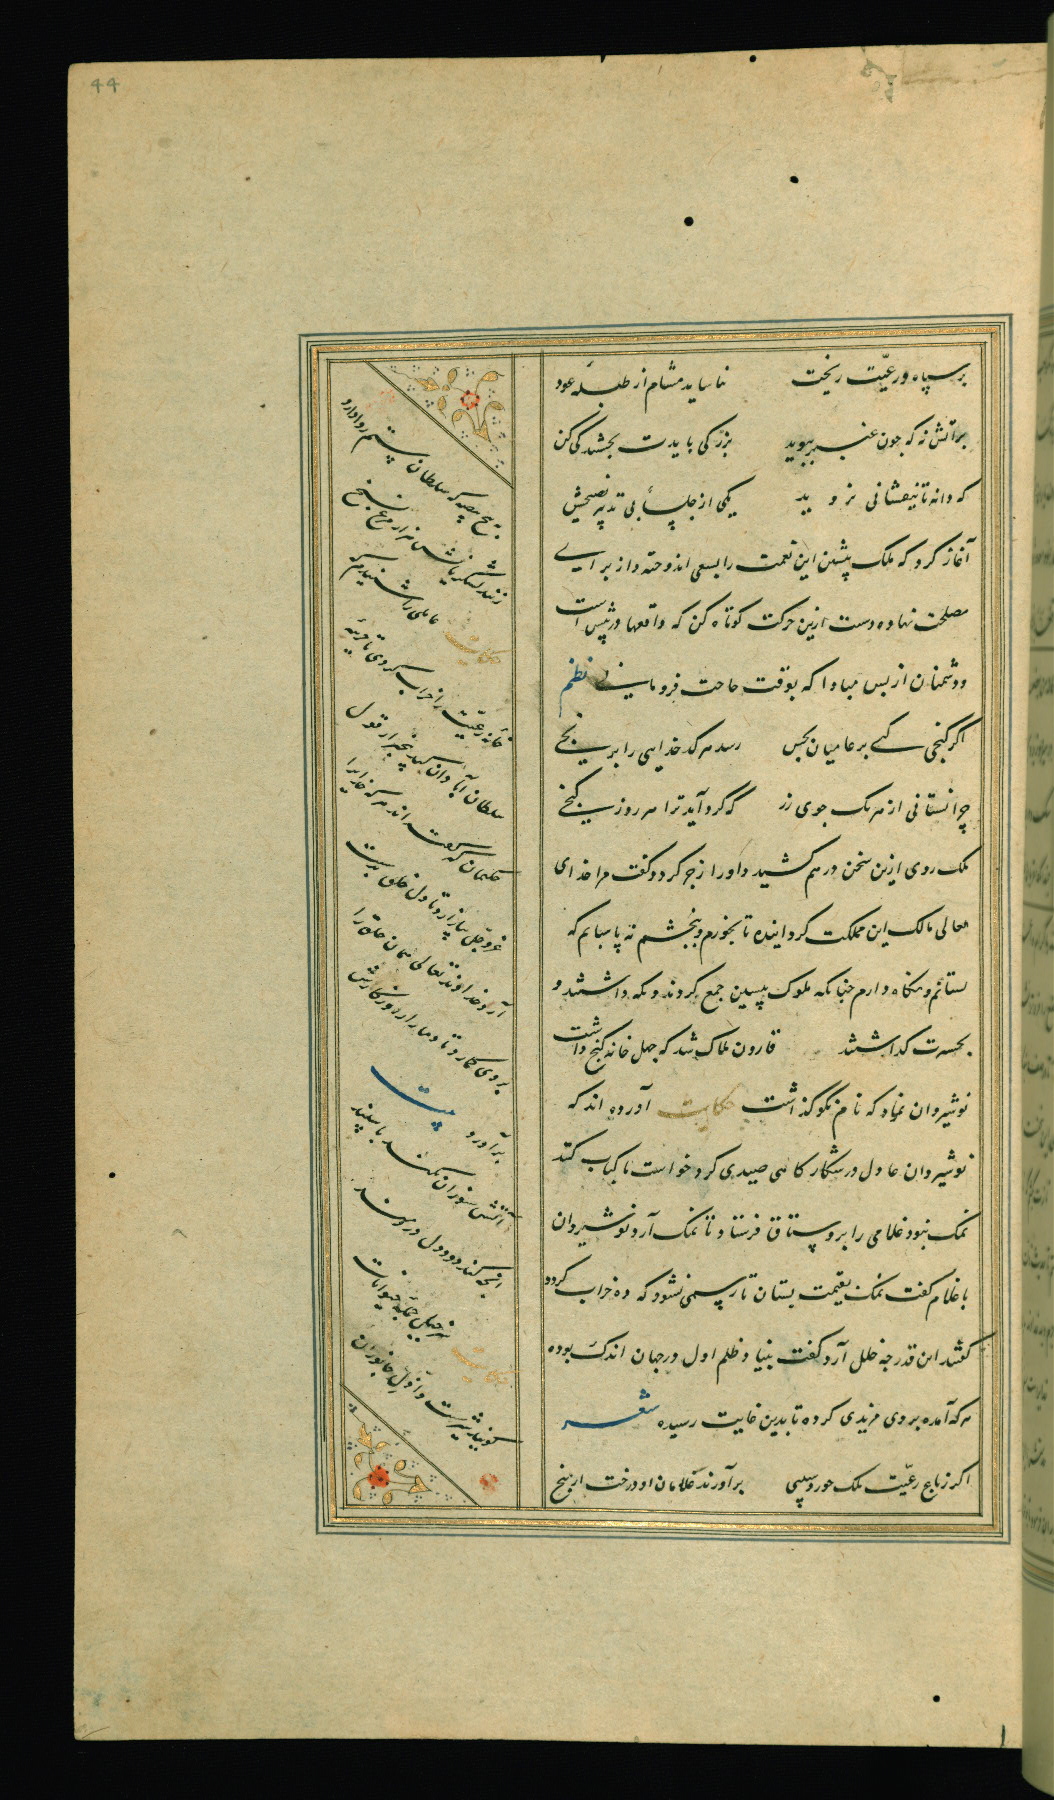 44
بر سپاه و رعیّت ریخت نیاساید مشام از طبله عود
بر آتش نه که چون عنبر ببوید بزرگی بایدت بخشندگی کن
که دانه تا نیفشانی نروید یکی از جلسای بی تدبیر نصیحتش
آغاز کرد که ملک پیشین این نعمت را بسعی اندوخته و از برای
مصلحت نهاده دست ازین حرکت کوتاه کن که واقعها در پیش است
و دشمنان از پس مبادا که بوقت حاجت فرومانی نظم
اگر گنجی کنی بر عامیان بخش رسد هر کدخدایی را برنجی
چرا نستانی از هر یک جوی زر که گرد آید ترا هر روز گنجی
ملک روی ازین سخن درهم کشید و او را زجر کرد و گفت مرا خدای
تعالی مالک این مملکت گردانیده تا بخورم و ببخشم نه پاسبانم که
بستانم و نگاه دارم چنانکه ملوک پیسین جمع کردند و نگه داشتند و
بحسرت گذاشتند قارون هلاک شد که چهل خانه گنج داشت
نوشیروان نماه که نام نکو گذاشت حکایت آورده اند که
نوشیروان عادل در شکار گاهی صیدی کرد خواست تا کباب کند
نمک نبود غلامی را بروستاق فرستاد تا نمک آرد نوشیروان
با غلام گفت نمک بقیمت بستان تا رسمی نشود که ده خراب گردد
گفتند این قدر چه خلل آرد گفت بنیاد ظلم اول در جهان اندک بوده
هر که آمده بروی مزیدی کرده تا بدین غایت رسیده شعر
اگر ز باغ رعیّت ملک خورد سیبی برآورند غلامان او درخت از بیخ
به پنج بیضه که سلطان ستم روا دارد
زنند لشکریانش هزار مرغ بسیخ
حکایت عاملی را شنیدم که
خانه رعیّت را خراب کردی تا خزینه
سلطان آبادان کند بیخبر از قول
حکیمان که گفته اند هر که خدایرا
عزّ و جل بیازارد تا دل خلق بدست
آرد خداوند تعالی همان خلق را
بروی گمارد تا دمار از روزگارش
برآورد بیت
آتش سوزان نکند با سپند
انچه کند دود دل دردمند
حکایت سر خیل جمله حیوانات
گویند شیرست و اوّل جانوران